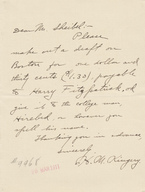 Dear Mr Sheibel:-
Please
make out a draft on
Boston for one dollar and
thirty cents ($1.30), payable
to Harry Fitzpatrick, and
give it to the college man,
Herschel, or however you
spell his name.
Thanking you in advance,
Sincerely
M. Kingery
#9068